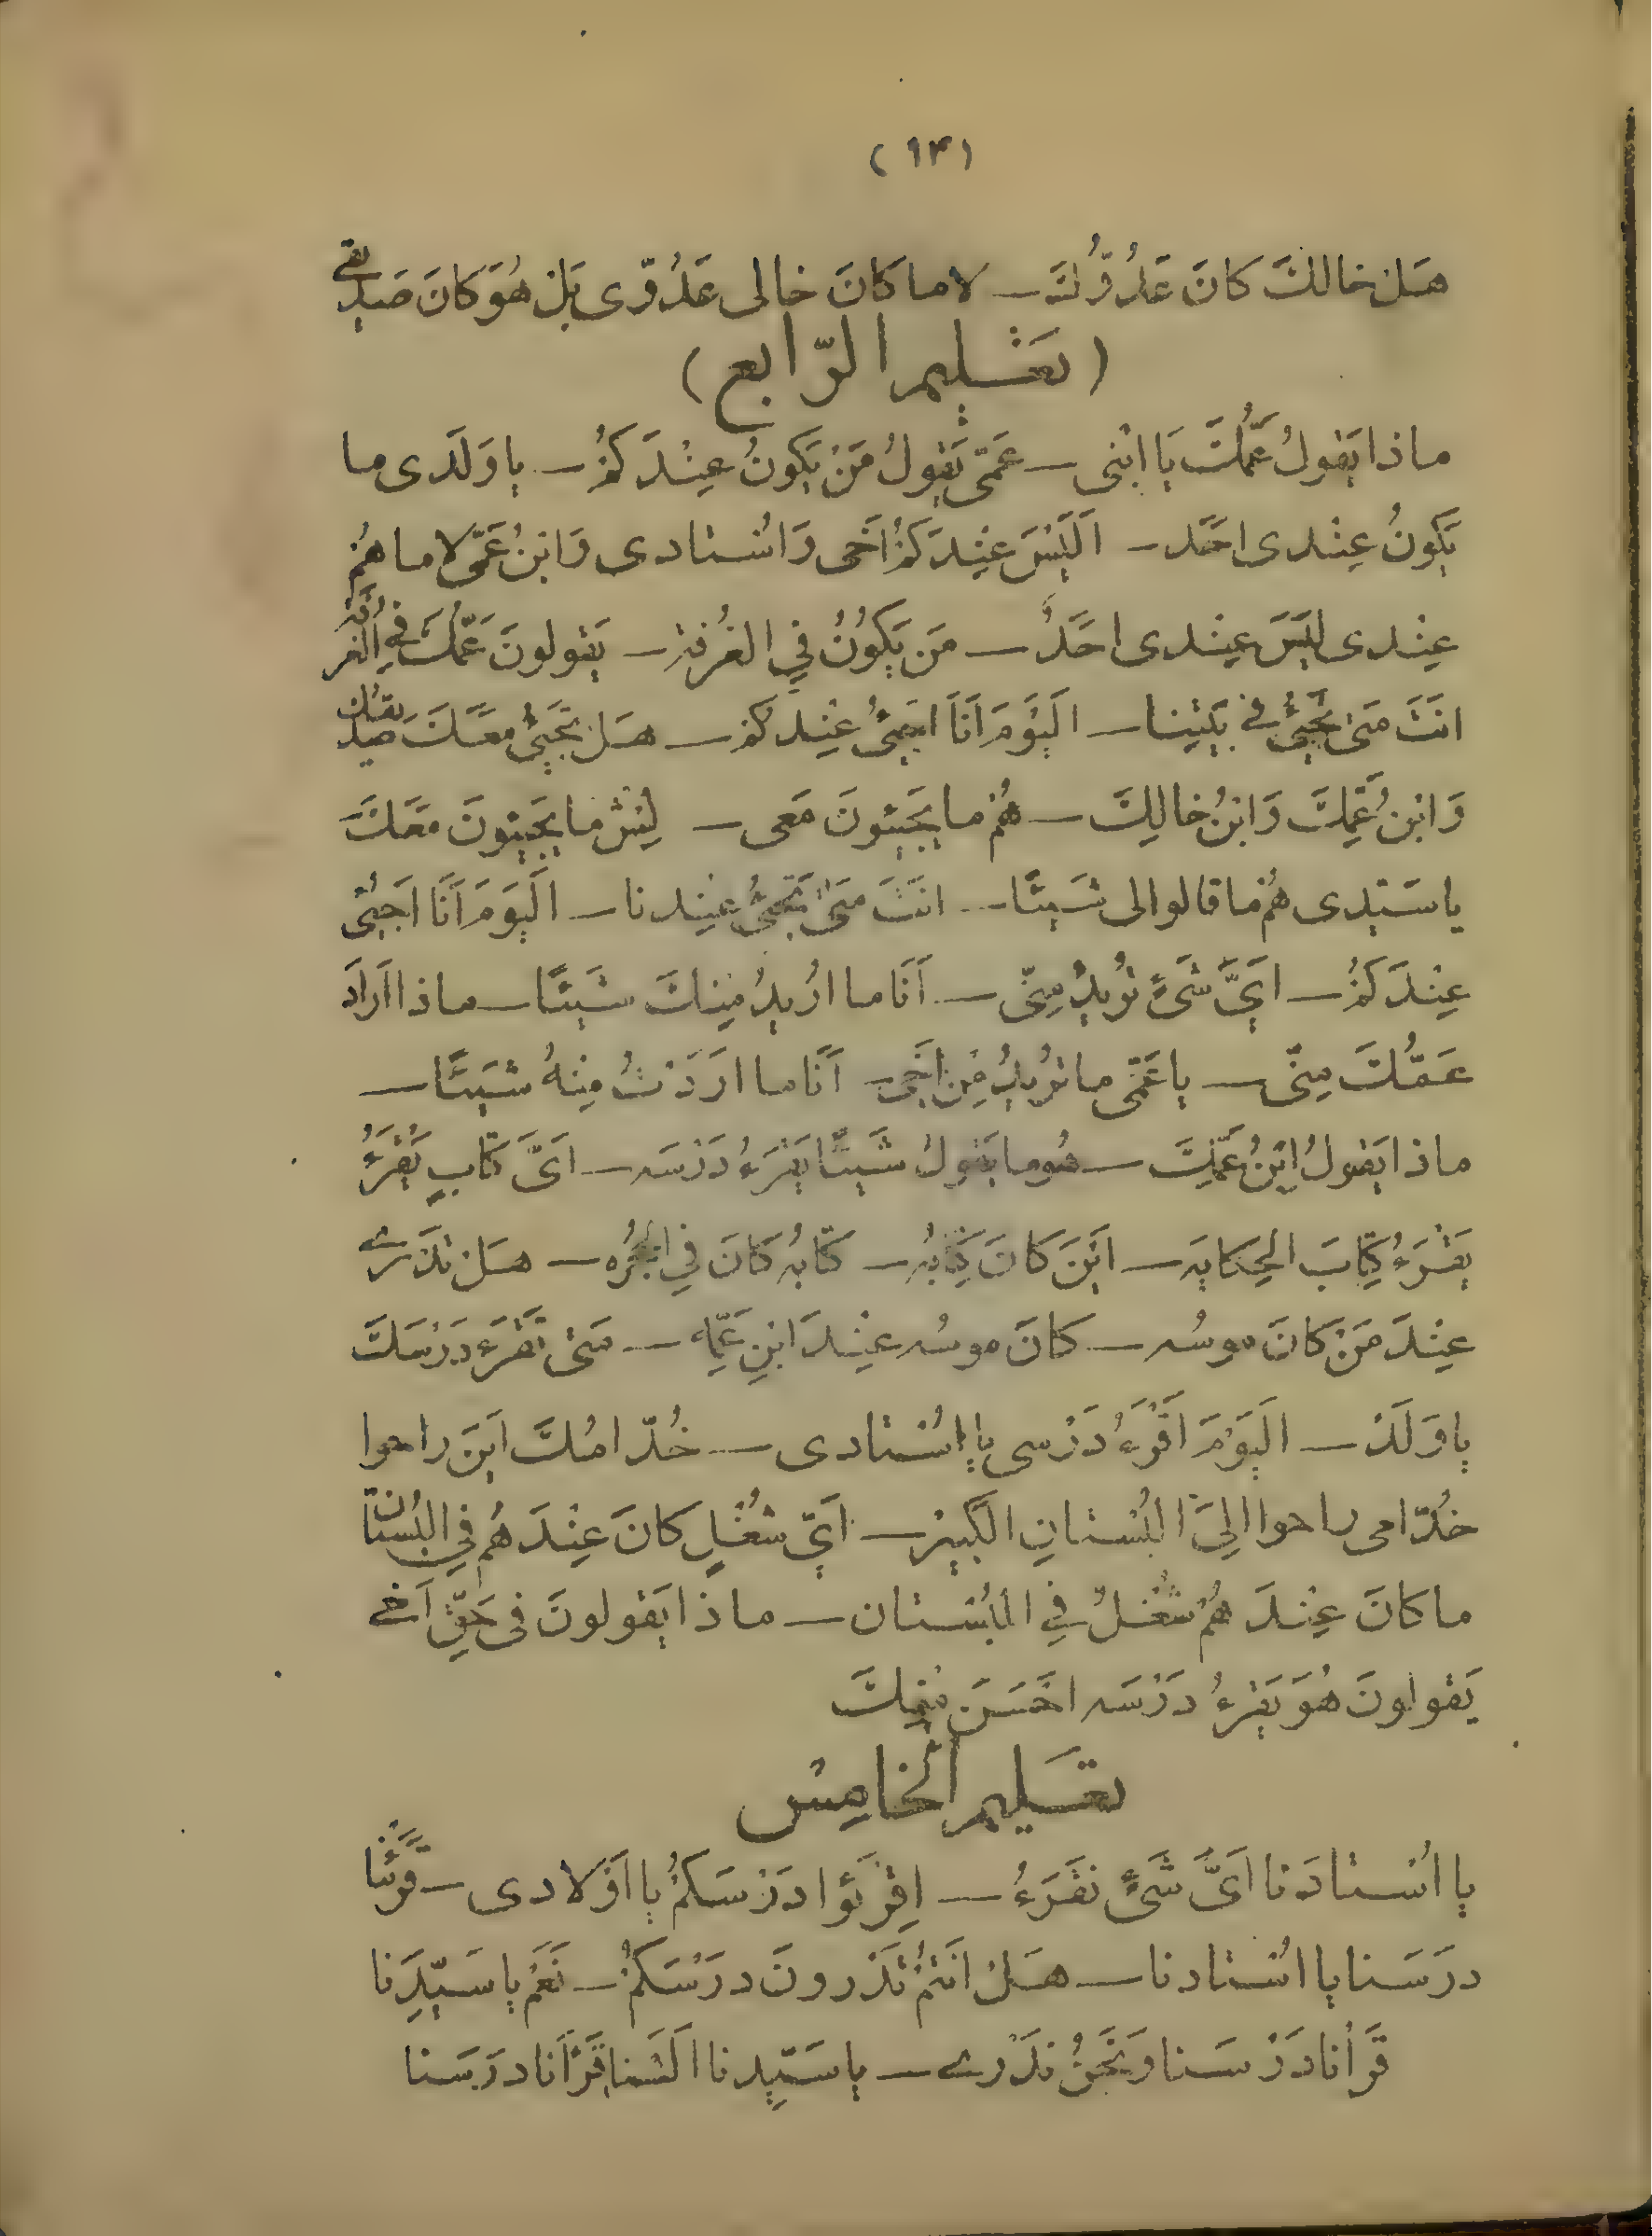 (١٣)
هَل خالكَ كانَ عَدُوُّكَ ـ لا ما كَانَ خالى عَدُوّى بَل هُوَ كانَ صَديقى
(تعَليم الرّابع)
ماذا يَقولُ عَمُّكَ يَا ابْنى ـ عَمّى يَقولُ مَنْ يَكونُ عِنْدَكُمْ ـ يا وَلَدى ما
يَكونُ عِنْدى احَد ـ اَلَيْسَ عِنْدَكُمْ اَخى وَاُسْتادى وَابنُ عَمّى لا ما هُمْ
عِنْدى لَيسَ عِنْدى احَدُ ـ مَن يَكُونُ فِي الغُرفة ـ يَقولونَ عَمُّكَ فِي الغُرفة
انتَ مَتى تَجِيئُ في بَيْتِنا ـ اَليَوْمَ اَنَا اَجيئُ عِنْدكُم ـ هَل يَجيئُ معَكَ صَديقُكَ
وَابْنُ عَمِّكَ وَابنُ خالِكَ ـ هُمْ ما يَجيئونَ مَعى ـ لِيْش ما يَجيئونَ مَعَكَ
يا سَيّدى هُم ما قالوا لى شَيئًا ـ انتَ مَتىٰ تَجيئُ عِنْدنا ـ اَليَومَ اَنَا اَجيئُ
عِنْدَكُمْ ـ اَيَّ شَئٍ تُريدُ مِنّى ـ اَنَا ما اُريدُ مِنكَ شَيئًا ـ ماذا اَرادَ
عَمُّكَ مِنّى ـ يا عَمّى ما تُريدُ مِن اَخى ـ اَنَا ما اَرَدْتُ مِنهُ شَيئًا ـ
ماذا يَقولُ ابْنُ عَمِّكَ ـ هُو ما يَقولُ شَيئًا يَقْرَءُ دَرْسَه ـ اَىَّ كِتابٍ يَقْرَءُ
يَقْرَءُ كِتابَ الحِكايَه ـ اَيْنَ كَانَ كِتابُه ـ كِتابُه كَانَ فِي الحُجْرَه ـ هَل تَدْرى
عِنْدَ مَنْ كَانَ موسُه ـ كَانَ موسُه عِنْدَ ابْنِ عَمِّه ـ مَتى تَقْرَءُ دَرْسَكَ
يا وَلَدْ ـ اَليَوْمَ اَقْرَءُ دَرْسى يا اُسْتادى ـ خُدّامُكَ اَيْنَ راحوا
خُدّامى راحوا اِلىَ البُسْتانِ الكَبيرْ ـ اَيّ شُغْلٍ كَانَ عِنْدَهُمْ فِي البُسْتان
ما كانَ عِنْدَهُمْ شُغْلٌ فِي البُسْتان ـ ماذا يَقولونَ فى حَقِّ اَخى
يَقولونَ هُوَ يَقْرءُ دَرْسَه احْسَنَ مِنكَ
تعَليم الخامِسْ
يا اُسْتادَنا اَىَّ شَئٍ نَقْرَءُ ـ اِقْرَئوا دَرْسَكُمْ يا اَوْلادى ـ قَرَئْنا
درَسَنا يا اُسْتادنا ـ هَلْ انتُمْ تَدْرونَ درَسَكُمْ ـ نَعَمْ يا سَيّدَنا
قَرأنا دَرْسَنا وَنَحْنُ نَدْرى ـ يا سَيّدنا اَلَسْنا قَرَأنا درَسَنا